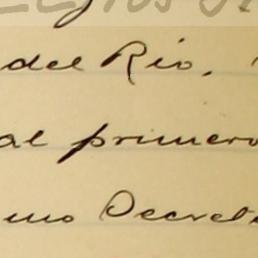 del Río,
al primero
mo Decret